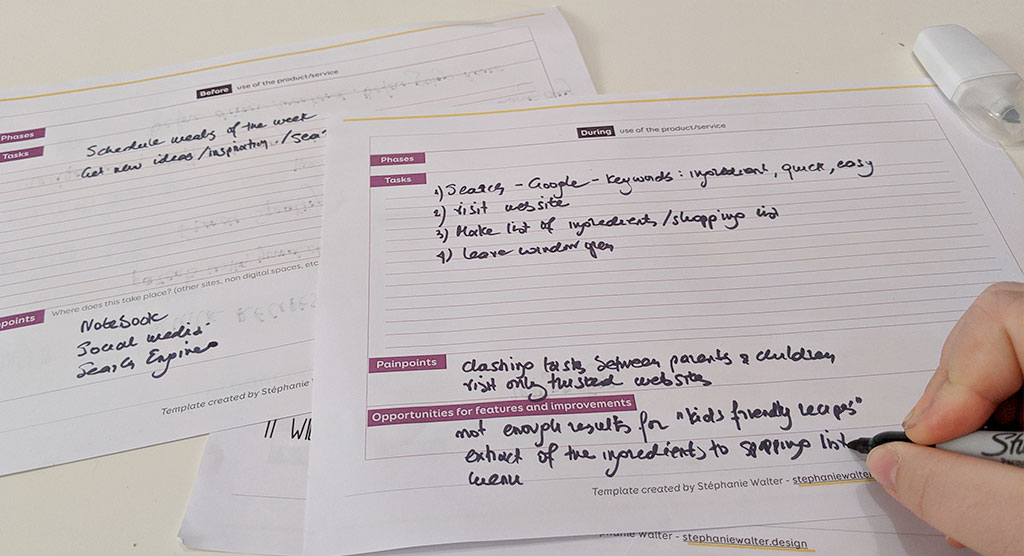 Before use of the product/service
Phases
Tasks
Schedule meals of the week
Get new ideas/inspiration/sear
Where does this take place? (other sites, non digital spaces, etc
points
Notebook
Social media
Search Engines
Template created by Stéphanie W
IT WI
During use of the product/service
Phases
Tasks
1) Search - Google - keywords: ingredient, quick, easy
2) visit website
3) Make list of ingredients/shopping list
4) leave window open
Painpoints
clashing tasts between parents & children
visit only trusted websites
Opportunities for features and improvements
not enough results for "kids friendly recipes"
extract of the ingredients to shopping list
menu
Template created by Stéphanie Walter - stephaniewalter
phanie Walter - stephaniewalter.design